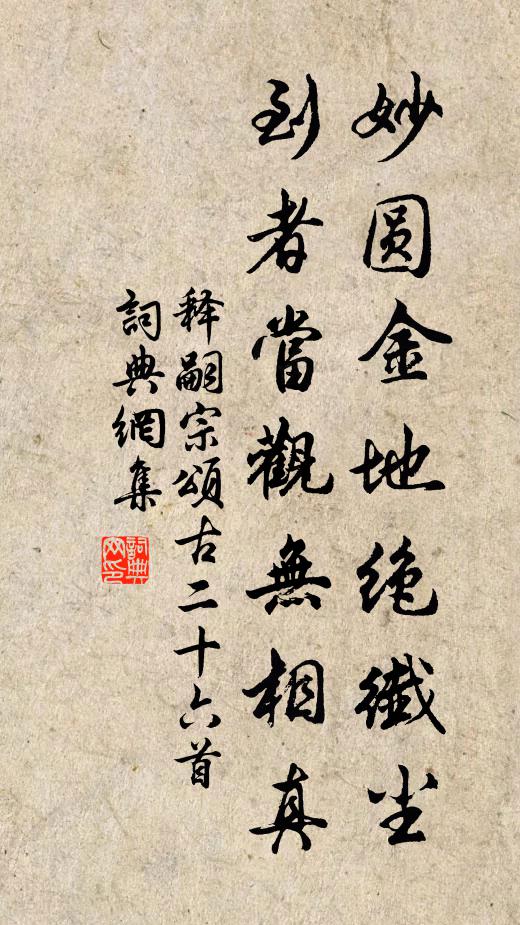 妙圆金地绝纖尘
到者當觀無相真
释嗣宗頌古二十六首
詞典網集
詞典网印